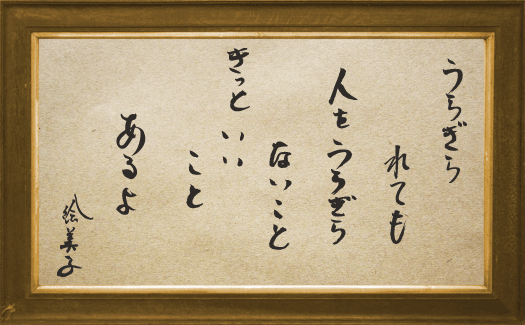 うらぎら
れても
人をうらぎら
ないこと
きっと
いい
こと
あるよ
絵美子